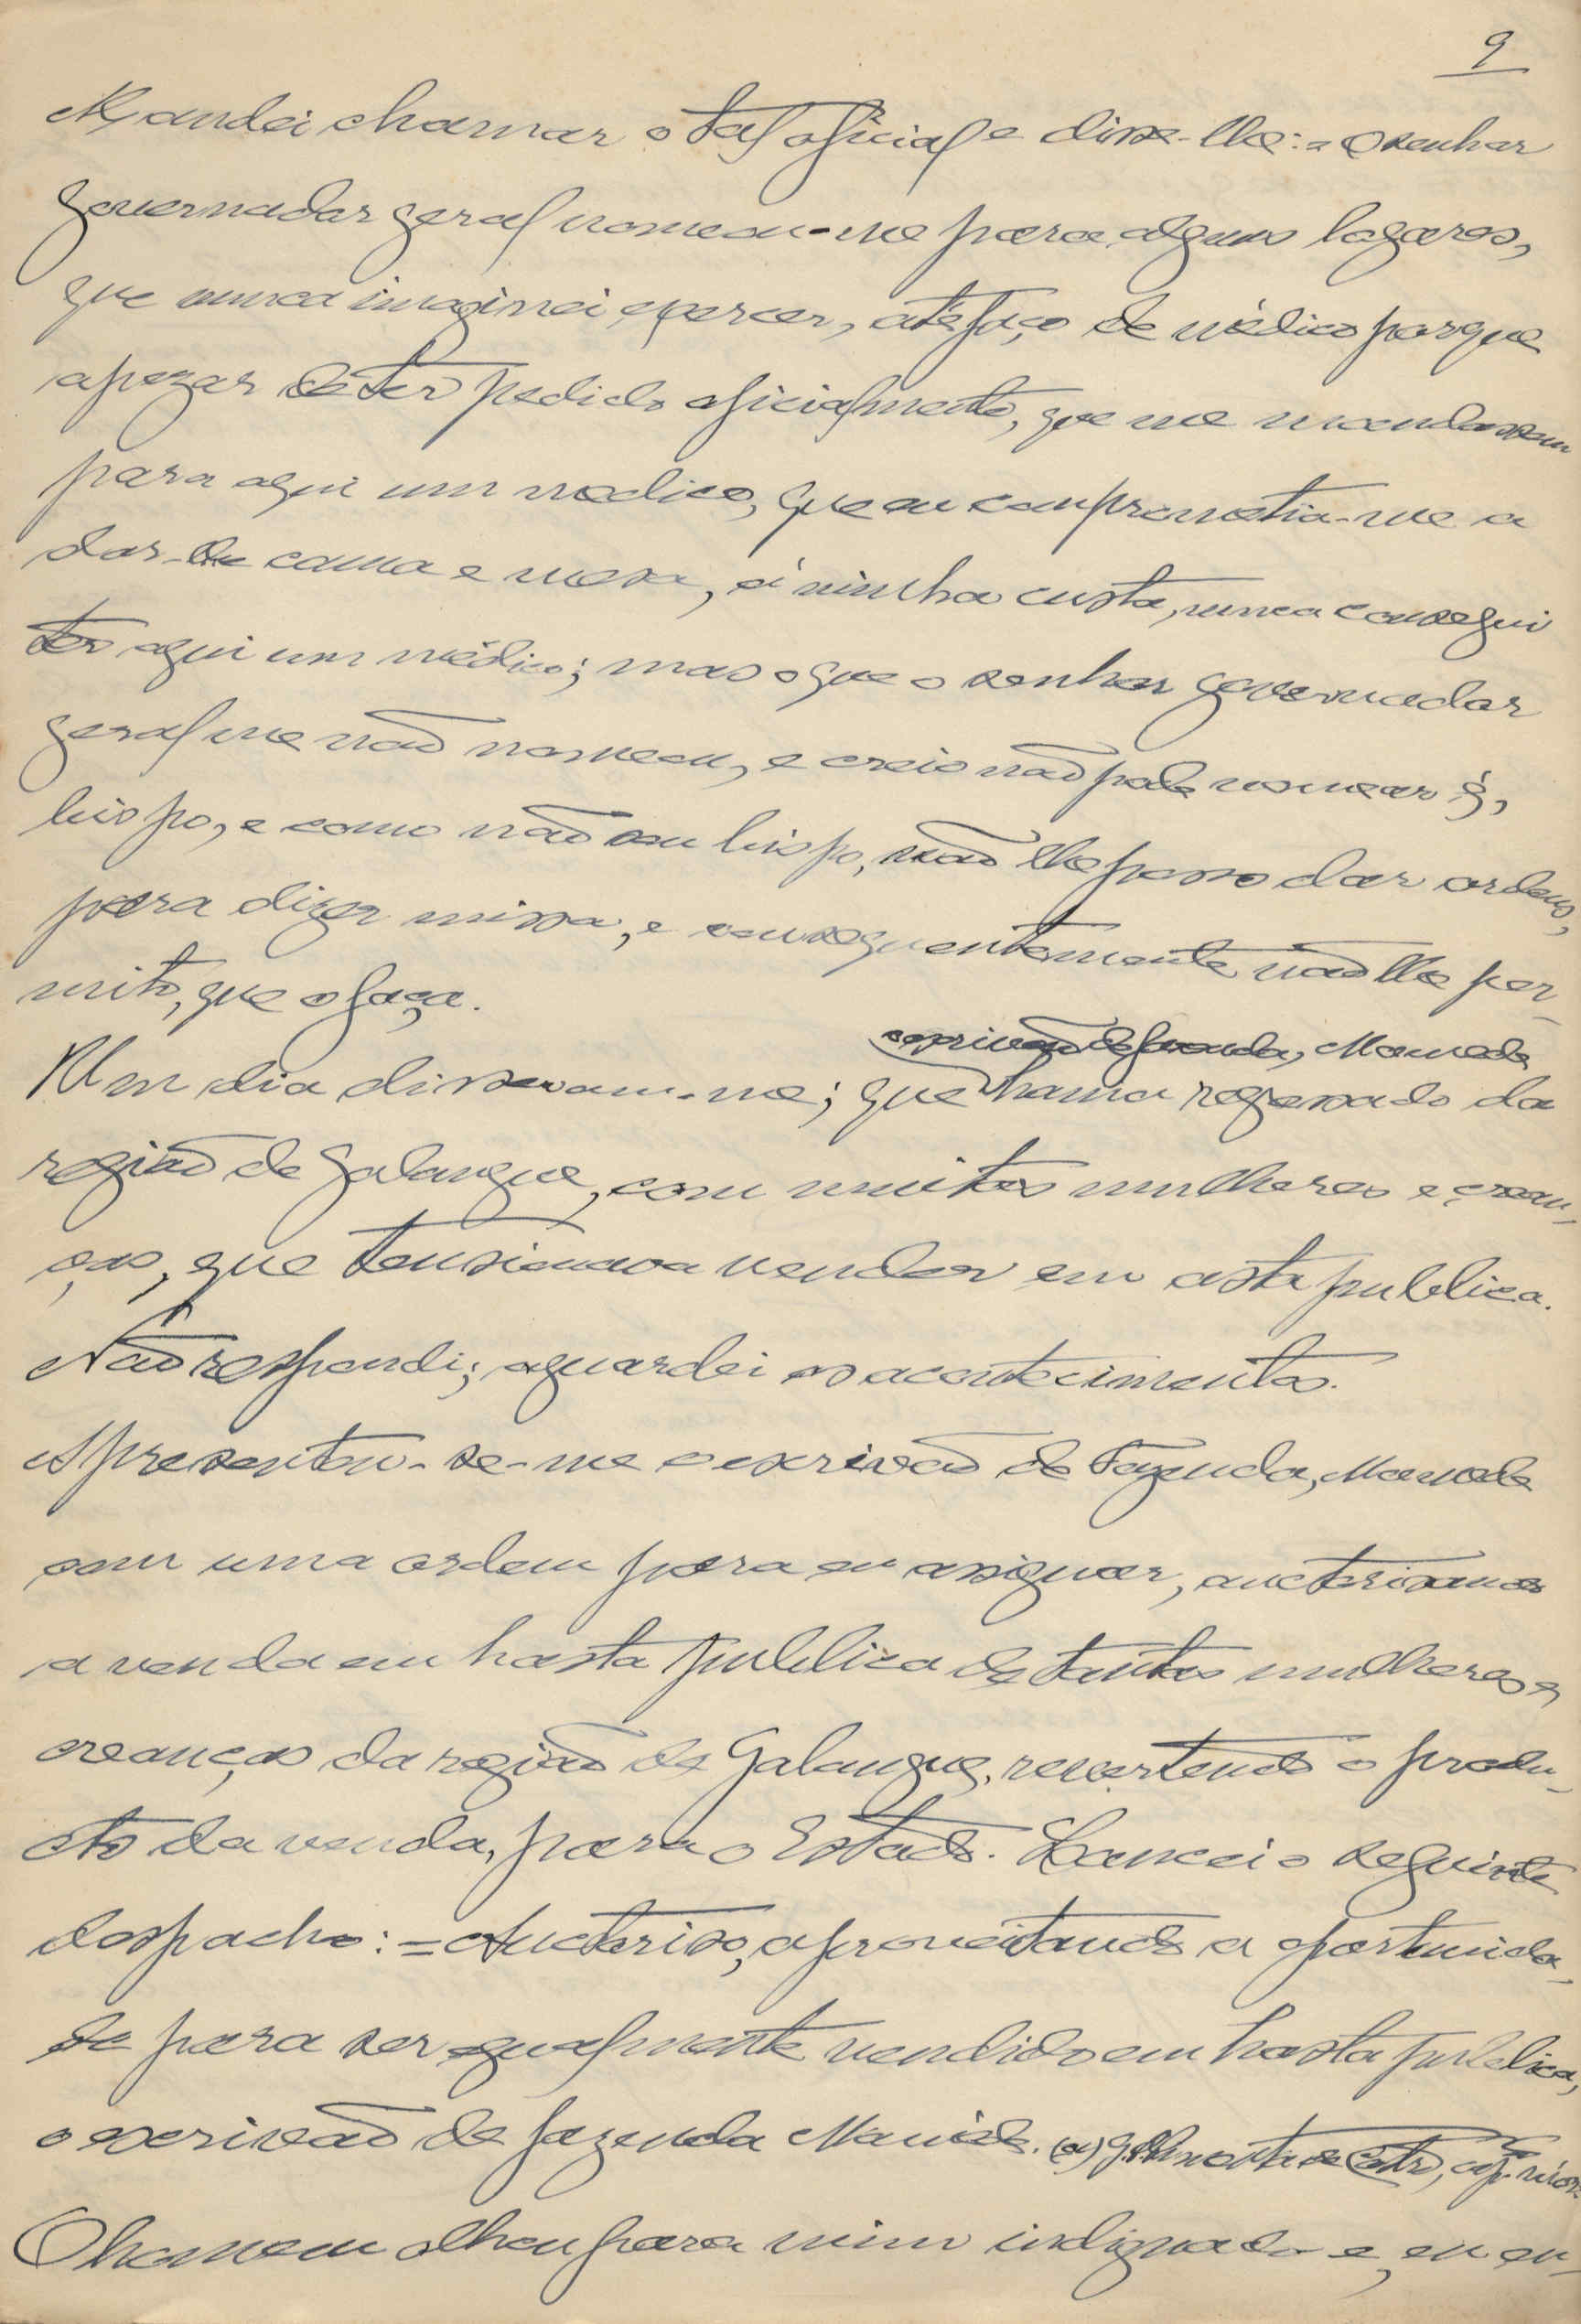 9
Mandei chamar o tal oficial e disse-lhe: = O senhor
governador geral nomeou-me para alguns logares,
que nunca imaginei exercer, até faço de médico porque
apezar de ter pedido oficialmente, que me mandassem
para aqui um medico, que eu comprometia-me a
dar-lhe cama e mesa, á minha custa, nunca consegui
ter aqui um médico; mas o que o senhor governador
geral me não nomeou, e creio não pode nomear é,
bispo, e como não sou bispo, não lhe posso dar ordens,
para dizer missa, e consequentemente não lhe per-
mito, que o faça.
escrivão de fazenda, Mamede
Um dia disseram-me; que havia regressado da
região de Galangue, com muitas mulheres e crean-
ças, que tensionava vender em asta publica.
Não respondi; aguardei os acontecimentos.
Apresentou-se-me o escrivão de Fazenda, Mamede
com uma ordem para eu assignar, auctorisando
a venda em hasta publica de tantas mulheres e
creanças da região de Galangue, revertendo o produ-
cto da venda, para o Estado. Lancei o seguinte
despacho: = Auctoriso, aproveitando a oportunida-
de para ser egualmente vendido em hasta publica,
o escrivão de fazenda Mamede. (a)
O homem olhou para mim indignado e, eu en-